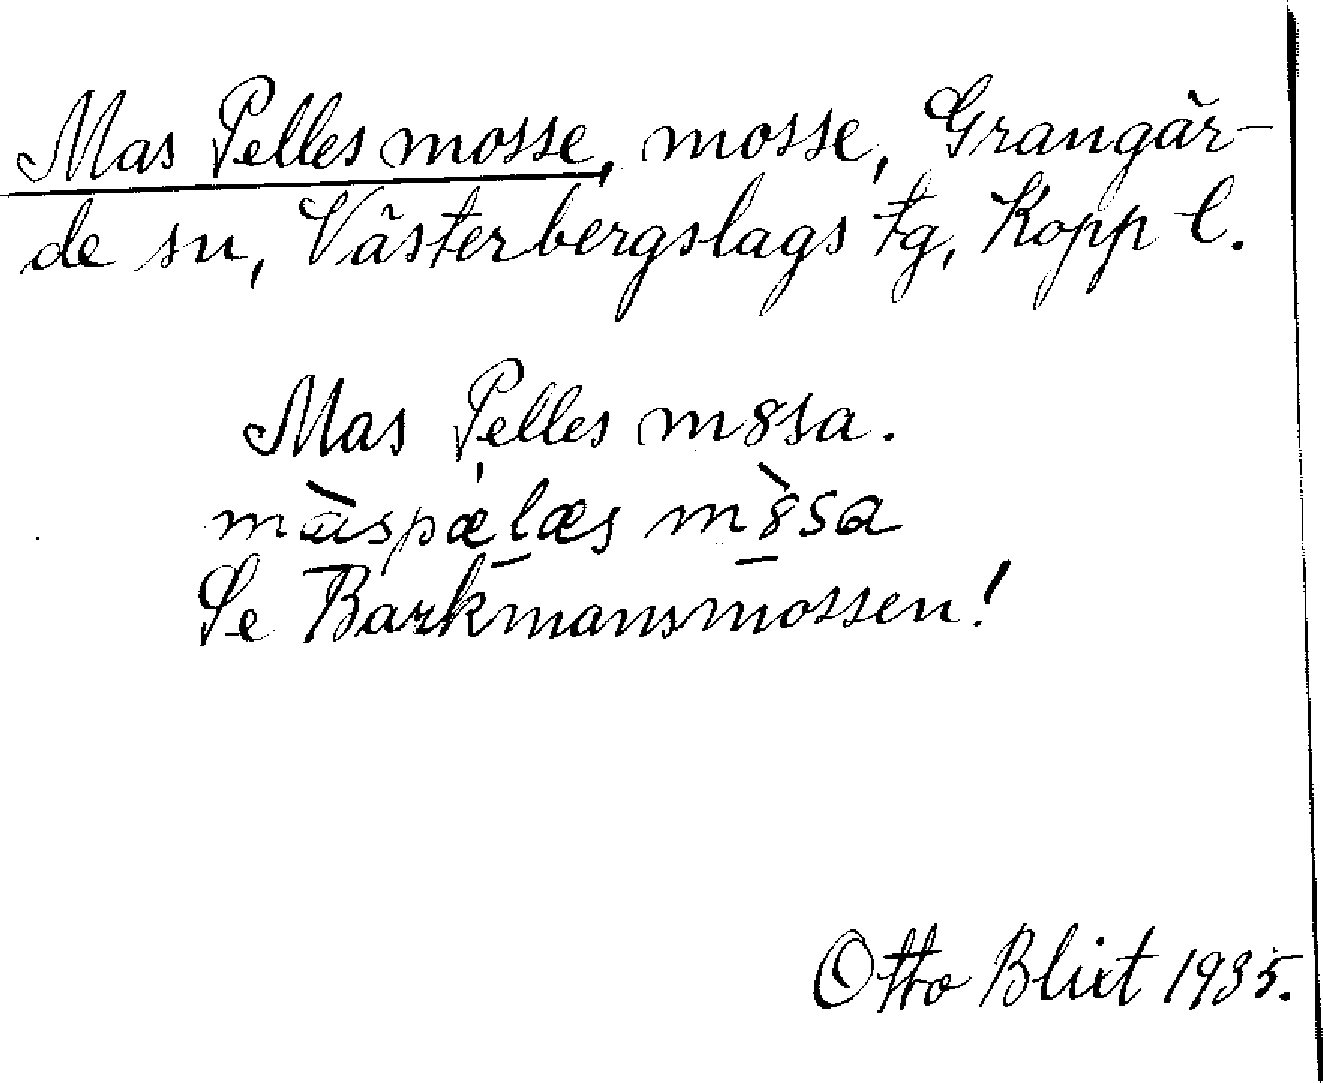 Mas Pelles mosse, mosse, Grangär-
de sn, Västerbergslags tg, Kopp l.
Mas Pelles m8sa.
màspælæs m8̀sa
Se Barkmansmossen!
Otto Blixt 1935.